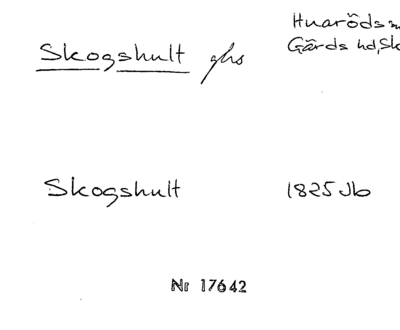 Huaröds
Skogshult ghs
Gärds hd, Sk
Skogshult 1825 Jb
Nr 17642